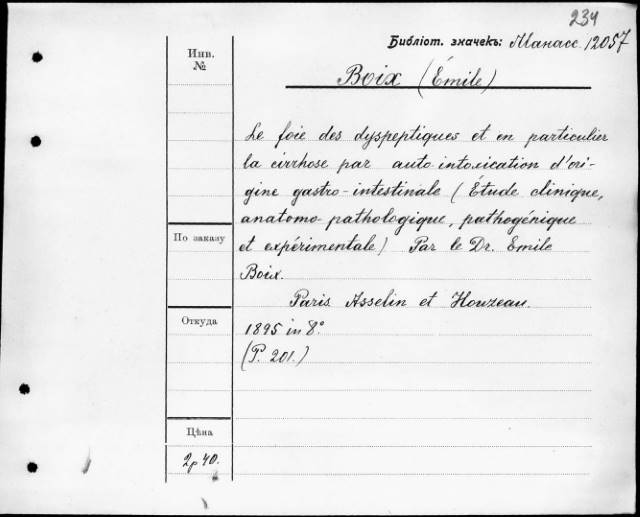 234
Библіот. значекъ: Манасс. 12057
Инв.
№
Boix (Émile)
Le foie des dyspeptiques et en particulier
la cirrhose par auto intoxication d'ori-
gine gastro-intestinale (Étude clinique,
anatomo-pathologique, pathogénique
et expérimentale) Par le Dr. Emile
Boix.
Paris Asselin et Houzeau.
1895 in 8°
(P. 201.)
По заказу
Откуда
Цѣна
2р 40.